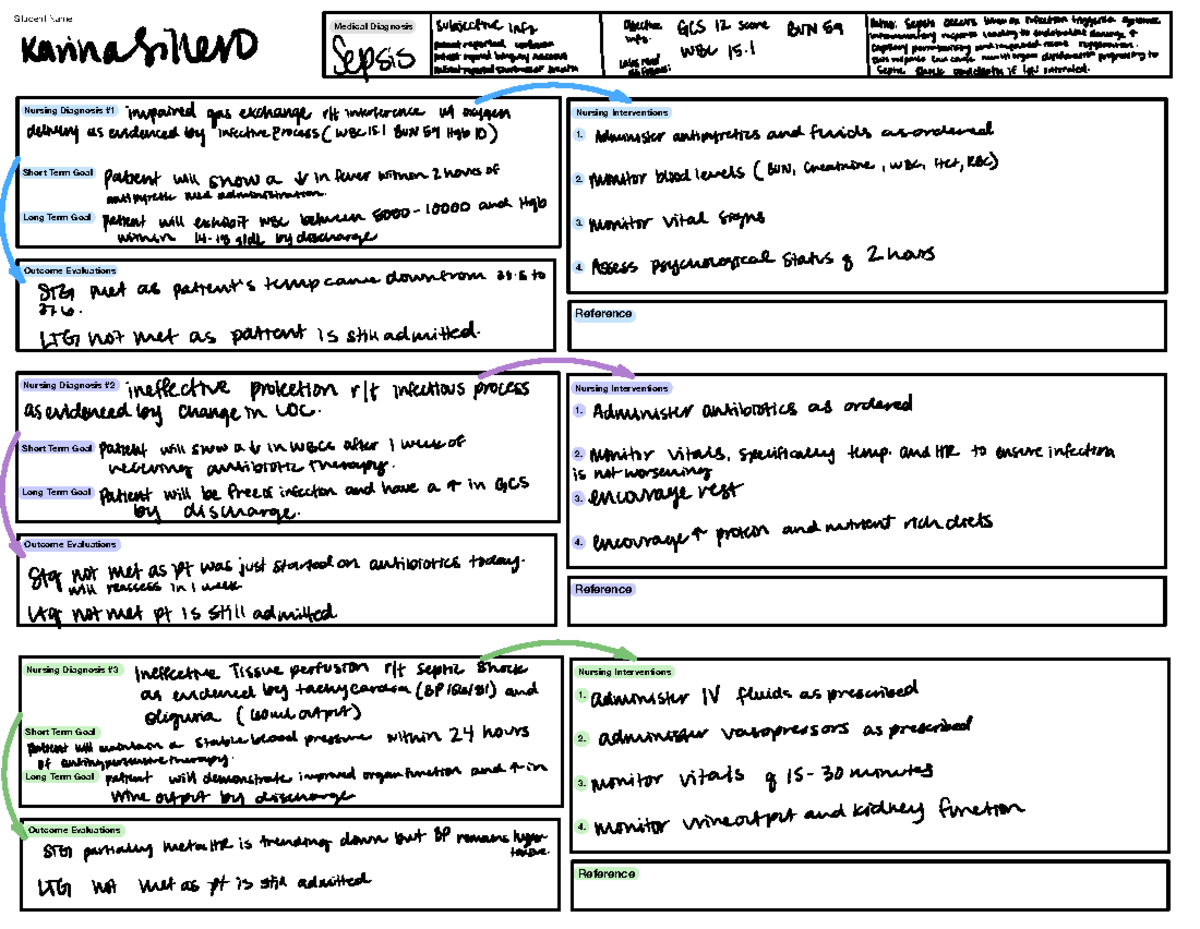 Student Name
Karina
Medical Diagnosis
Sepsis
Subjective Info
Objective info.
GCS 12 score
BUN 59
WBC 15.1
Nursing Diagnosis #1 impaired gas exchange r/t interference w/ oxygen
delivery as evidenced by infective process (WBC 15.1 BUN 59 Hgb 10)
Short Term Goal patient will show a ↓ in fever within 2 hours of
antipyretic med administration.
Long Term Goal patient will exhibit WBC between 5000-10000 and Hgb
within g/dL by discharge
Outcome Evaluations
STG met as patient's temp came down from to
37.6.
LTG not met as patient is still admitted.
Nursing Interventions
1. Administer antipyretics and fluids as ordered
2. Monitor blood levels (BUN, Creatinine, WBC, Hct, RBC)
3. Monitor vital signs
4. Assess psychological status q 2 hours
Reference
Nursing Diagnosis #2 ineffective protection r/t infectious process
as evidenced by change in LOC.
Short Term Goal patient will show a ↓ in WBCs after 1 week of
receiving antibiotic therapy.
Long Term Goal Patient will be free of infection and have a ↑ in GCS
by discharge.
Outcome Evaluations
STG not met as pt was just started on antibiotics today.
will reassess in 1 week
LTG not met pt is still admitted
Nursing Interventions
1. Administer antibiotics as ordered
2. Monitor vitals, specifically temp. and HR to ensure infection
is not worsening
3. encourage rest
4. encourage ↑ protein and nutrient rich diets
Reference
Nursing Diagnosis #3 Ineffective Tissue perfusion r/t septic shock
as evidenced by tachycardia (BP) and
oliguria (output)
Short Term Goal
patient will maintain a stable blood pressure within 24 hours
of antihypertensive therapy.
Long Term Goal patient will demonstrate improved organ function and ↑ in
urine output by discharge
Outcome Evaluations
STG partially met as HR is trending down but BP remains hyper-
tensive.
LTG not met as pt is still admitted
Nursing Interventions
1. administer IV fluids as prescribed
2. administer vasopressors as prescribed
3. monitor vitals q 15-30 minutes
4. monitor urine output and kidney function
Reference